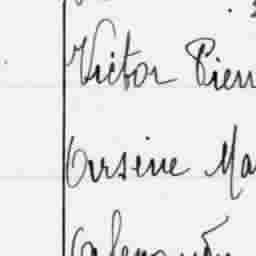 Victor Pierr
Arsène Ma
Alexandr